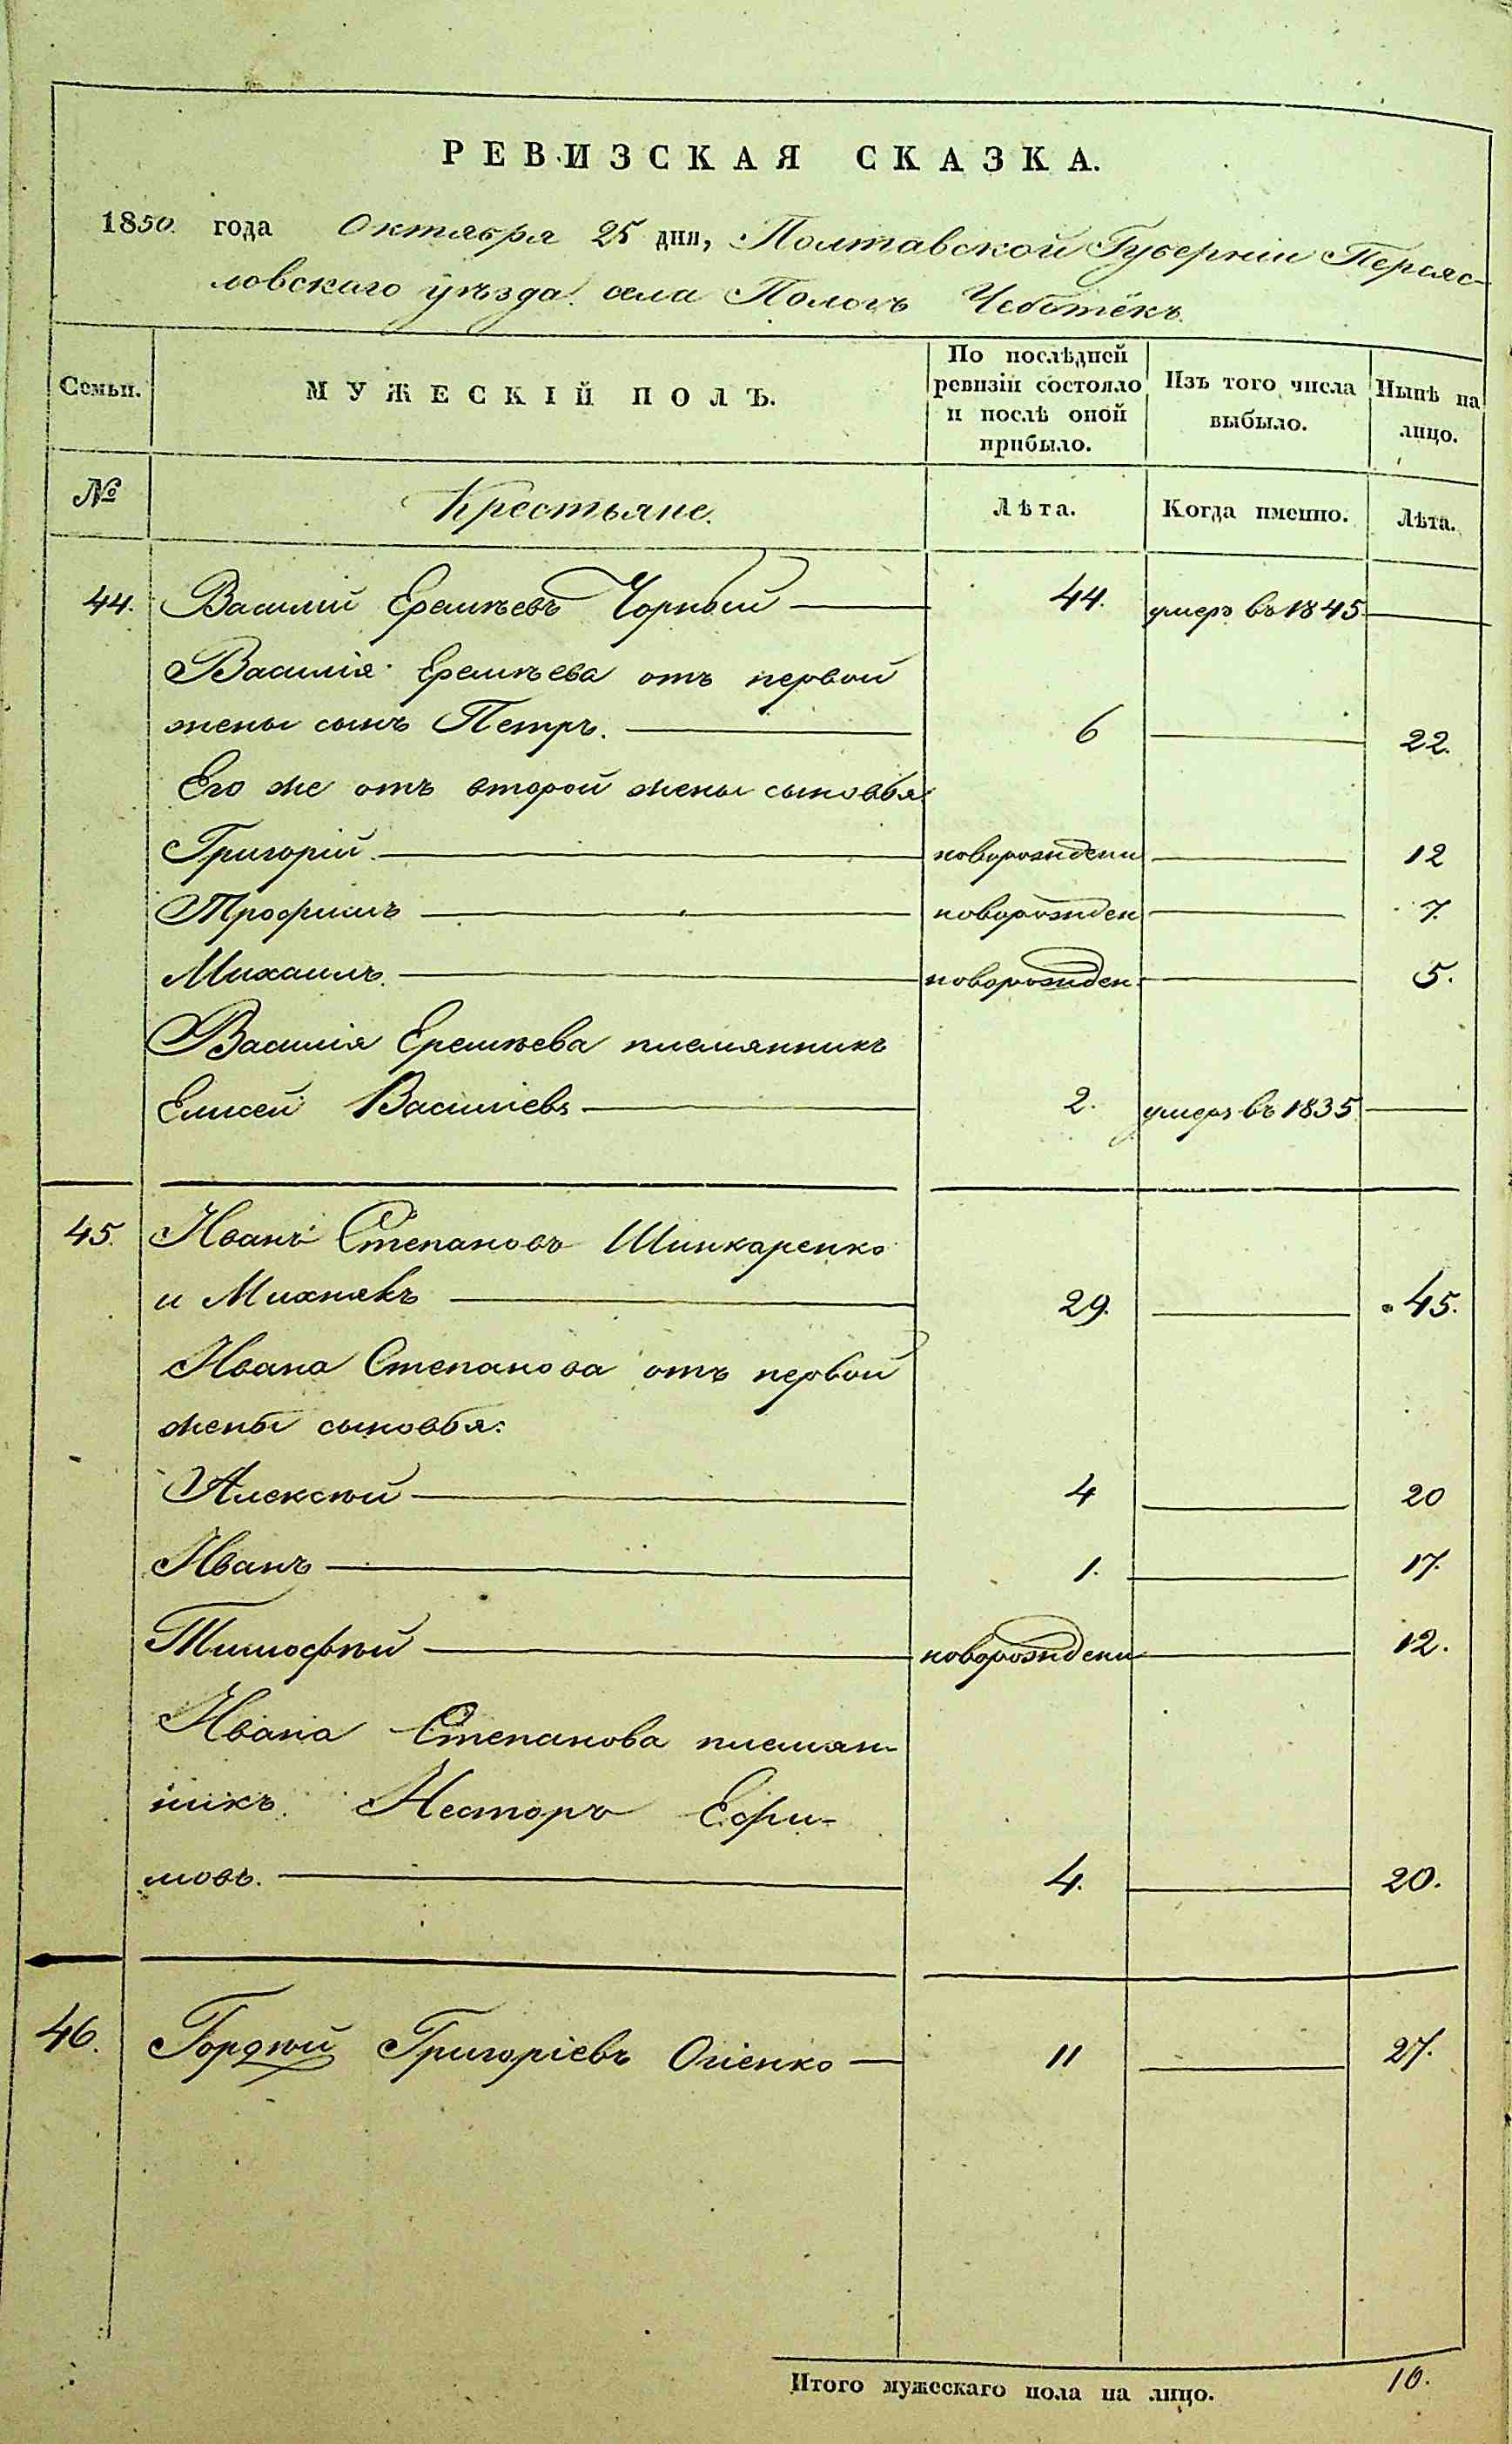 РЕВИЗСКАЯ СКАЗКА.
1850. года Октября 25 дня, Полтавской Губерніи Переяс-
ловскаго уѣзда села Пологъ Чеботёкъ.
Семьи. МУЖЕСКІЙ ПОЛЪ. По послѣдней ревизіи состояло и послѣ оной прибыло. Изъ того числа выбыло. Нынѣ на лицо.
№ Крестьяне. Лѣта. Когда именно. Лѣта.
44. Василий Еремѣевъ Чорный 44. умеръ въ 1845
Василія Еремѣева отъ первой
жены сынъ Петръ. 6 22.
Его же отъ второй жены сыновья
Григорій новорожденн 12
Трофимъ новорожден 7.
Михаилъ новорожден 5.
Василія Еремѣева племянникъ
Елисей Василіевъ 2. умеръ въ 1835
45. Иванъ Степановъ Шинкаренко
и Михнякъ 29. 45.
Ивана Степанова отъ первой
жены сыновья:
Алексѣй 4 20
Иванъ 1. 17.
Тимофѣй новорожденн 12.
Ивана Степанова племян-
никъ Несторъ Ефи-
мовъ. 4. 20.
46. Гордѣй Григоріевъ Огіенко 11 27.
Итого мужескаго пола на лицо. 10.